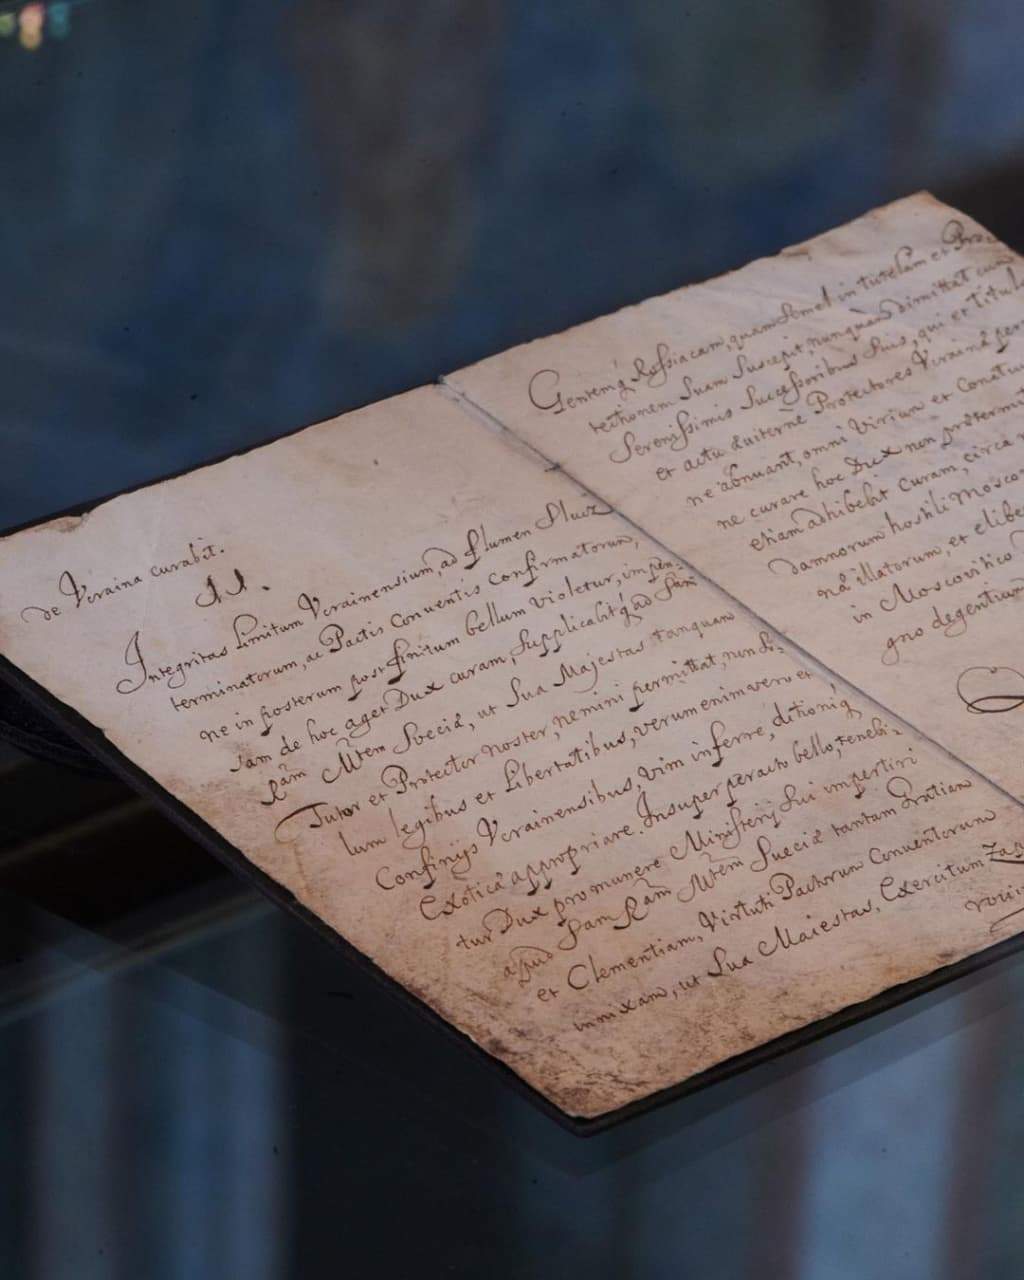 de Vcraina curabit.
II.
Integritas Limitum Vcrainensium, ad flumen Slucz
terminatorum, ac Pactis Conuentis confirmatorum,
ne in posterum post finitum bellum violetur, impen-
sam de hoc aget Dux curam, supplicabitq́, ad Sam
Rām Mtem Sveciæ, ut Sua Majestas tanquam
Tutor et Protector noster, nemini permittat, non so-
lum legibus et Libertatibus, verum enim vero et
Confinijs Vcrainensibus, vim inferre, ditioniq́,
Exoticæ appropriare. Insuper peracto bello, tenebi-
tur Dux pro munere Ministerij sui impertiri
apud Sam Rām Mtem Sueciæ tantam Gratiam
et Clementiam, Virtuti Pactorum Conuentorum
innixam, ut Sua Maiestas, Exercitum
Gentemq́ Rossiacam, quam semel in tutelam et
tectionem Suam suscepit, nunquam dimittat cum
Serenissimis Successoribus Suis, qui et
et actu æuiternè Protectores Vcrainæ
ne abnuant, omni virium et
ne curare hoc Dux non
etiam adhibebit curam, circa
damnorum hostili
næ illatorum, et
in Moscovitico
gno degentium